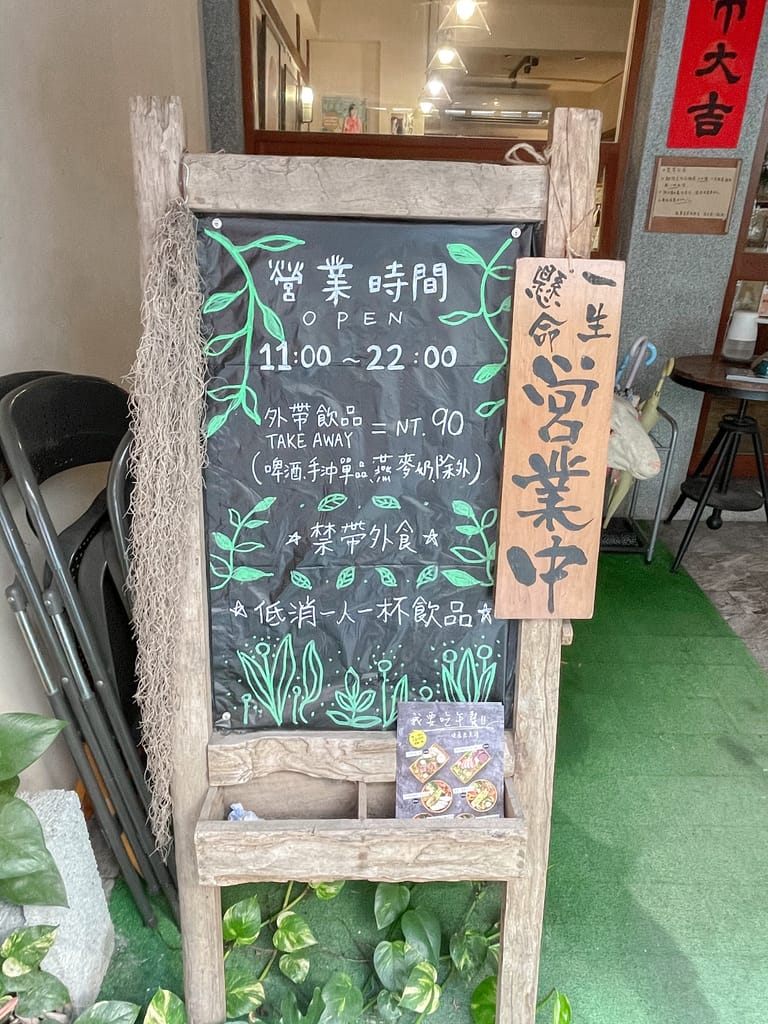 營業時間
OPEN
11:00 ~ 22:00
外帶飲品
TAKE AWAY
= NT. 90
(啤酒.手沖單品.燕麥奶除外)
☆禁帶外食☆
☆低消一人一杯飲品☆
一生
懸命
営業中
大吉
我要吃午餐!!